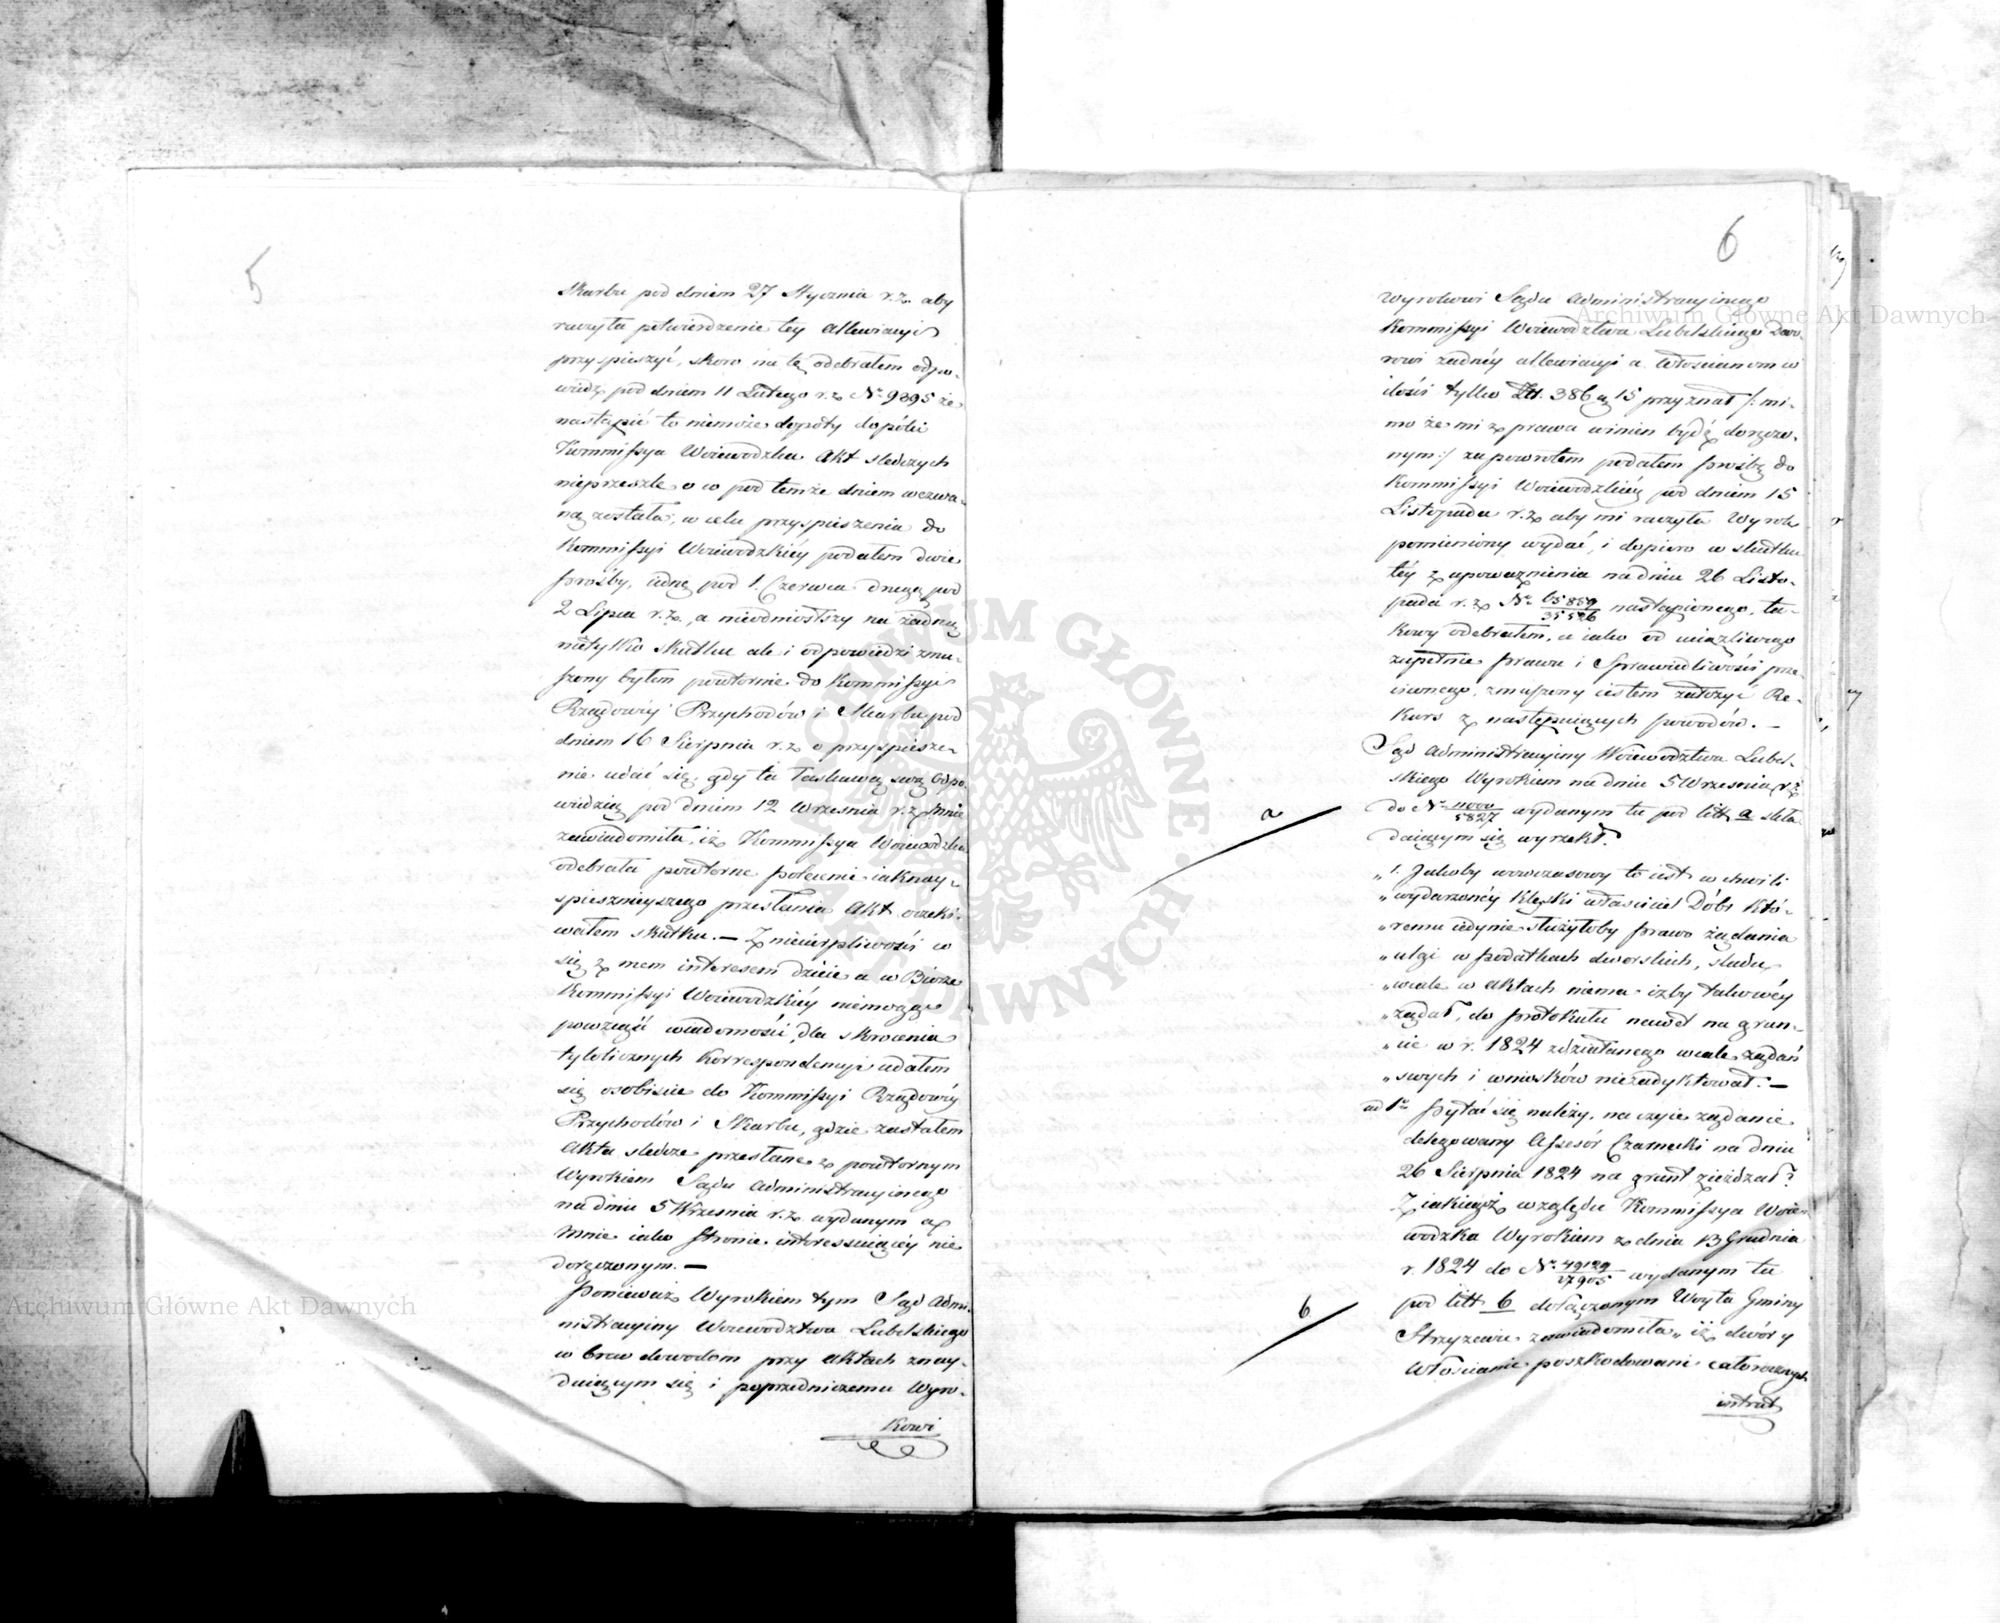 5
Skarbu pod dniem 27 Stycznia r.z. aby
raczyła potwierdzenie tey allewiacyi
przyspieszyć, skoro na tę odebrałem odpo-
wiedź pod dniem 11 Lutego r.z. Nr 9395 że
nastąpić to niemoże dopóty dopóki
Kommissya Woiewodzka Akt śledczych
nieprzeszle o co pod temże dniem wezwa-
ną została, w celu przyspieszenia do
Kommissyi Woiewodzkiéy podałem dwie
prośby, iedną pod 1. Czerwca drugą pod
2 Lipca r.z., a nieodniosłszy na żadną
nietylko skutku ale i odpowiedzi zmu-
szony byłem powtórnie do Kommissyi
Rządowéy Przychodów i Skarbu pod
dniem 16 Sierpnia r.z. o przyspiesze-
nie udać się, gdy ta łaskawą swą Odpo-
wiedzią pod dniem 12 Września r.z. mnie
zawiadomiła, iż Kommissya Woiewodzka
odebrała powtórne polecenie iaknay-
spiesznieyszego przesłania Akt oczeki-
wałem skutku. — Z niecierpliwości co
się z mem interesem dzieie a w Biórze
Kommissyi Woiewodzkiéy niemogąc
powziąść wiadomości, dla skrócenia
tylolicznych Korrespondencyi udałem
się osobiście do Kommissyi Rządowéy
Przychodów i Skarbu, gdzie zastałem
Akta śledcze przesłane z powtórnym
Wyrokiem Sądu Administracyinego
na dniu 5 Września r.z. wydanym a
mnie iako Stronie interessuiącéy nie
doręczonym. —
Ponieważ Wyrokiem tym Sąd Admi-
nistracyiny Woiewództwa Lubelskiego
w brew dowodom przy Aktach znay-
duiącym się i poprzedniczemu Wyro-
kowi
6
Wyrokowi Sądu Administracyinego
Kommissyi Woiewództwa Lubelskiego Dwo-
rowi żadnéy allewiacyi a Włościanom w
ilości tylko Złt. 386 g 15 przyznał /: mi-
mo że mi z prawa winien bydź doręczo-
nym :/ za powrotem podałem prośbę do
Kommissyi Woiewodzkiéy pod dniem 15
Listopada r.z. aby mi raczyła Wyrok
pomieniony wydać, i dopiero w skutku
téy z upoważnienia na dniu 26 Listo-
pada r.z. Nr 65859/35526 nastąpionego, ta-
kowy odebrałem, a iako od uciążliwego
zupełnie prawu i Sprawiedliwości prze-
ciwnego, zmuszony iestem założyć Re-
kurs z następuiących powodów. —
Sąd Administracyiny Woiewództwa Lubel-
skiego Wyrokiem na dniu 5 Września r.z.
a
do Nr 41000/5827 wydanym tu pod litt a skła-
daiącym się wyrzekł.
„1. Jakoby wówczasowy to iest w chwili
„wydarzonéy Klęski właściciel Dóbr któ-
„remu iedynie służyłoby prawo żądania
„ulgi w podatkach dworskich, śladu
„wcale w aktach niema iżby takowéy
„żądał, do protokułu nawet na grun-
„cie w r. 1824 zdziałanego wcale żądań
„swych i wniosków niezadyktował. —
ad 1o Pytać się należy, na czyie żądanie
delegowany Assesór Czarnecki na dniu
26 Sierpnia 1824 na grunt zieżdżał?
Z iakiegoż względu Kommissya Woie-
wodzka Wyrokiem z dnia 13 Grudnia
r. 1824 do Nr 49129/27905 wydanym tu
b
pod litt b dołączonym Woyta Gminy
Strzyżewic zawiadomiła „iż dwór y
Włościanie poszkodowani całorocznych
intrat
Archiwum Główne Akt Dawnych
Archiwum Główne Akt Dawnych
ARCHIWUM GŁÓWNE · AKT DAWNYCH ·